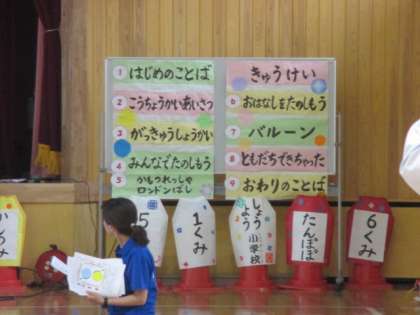 1 はじめのことば
2 こうちょうかいあいさつ
3 がっきゅうしょうかい
4 みんなでたのしもう
5 かもつれっしゃ
ロンドンばし
きゅうけい
6 おはなしをたのしもう
7 バルーン
8 ともだちできちゃった
9 おわりのことば
5
1くみ
しょうよう小学校
たんぽぽ
6くみ